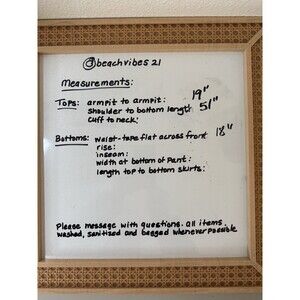 @beachvibes21
Measurements:
Tops: armpit to armpit: 19"
shoulder to bottom length 51"
cuff to neck:
Bottoms: waist-tape flat across front 18"
rise:
inseam:
width at bottom of pant:
length top to bottom skirts:
Please message with questions. all items
washed, sanitized and bagged whenever possible